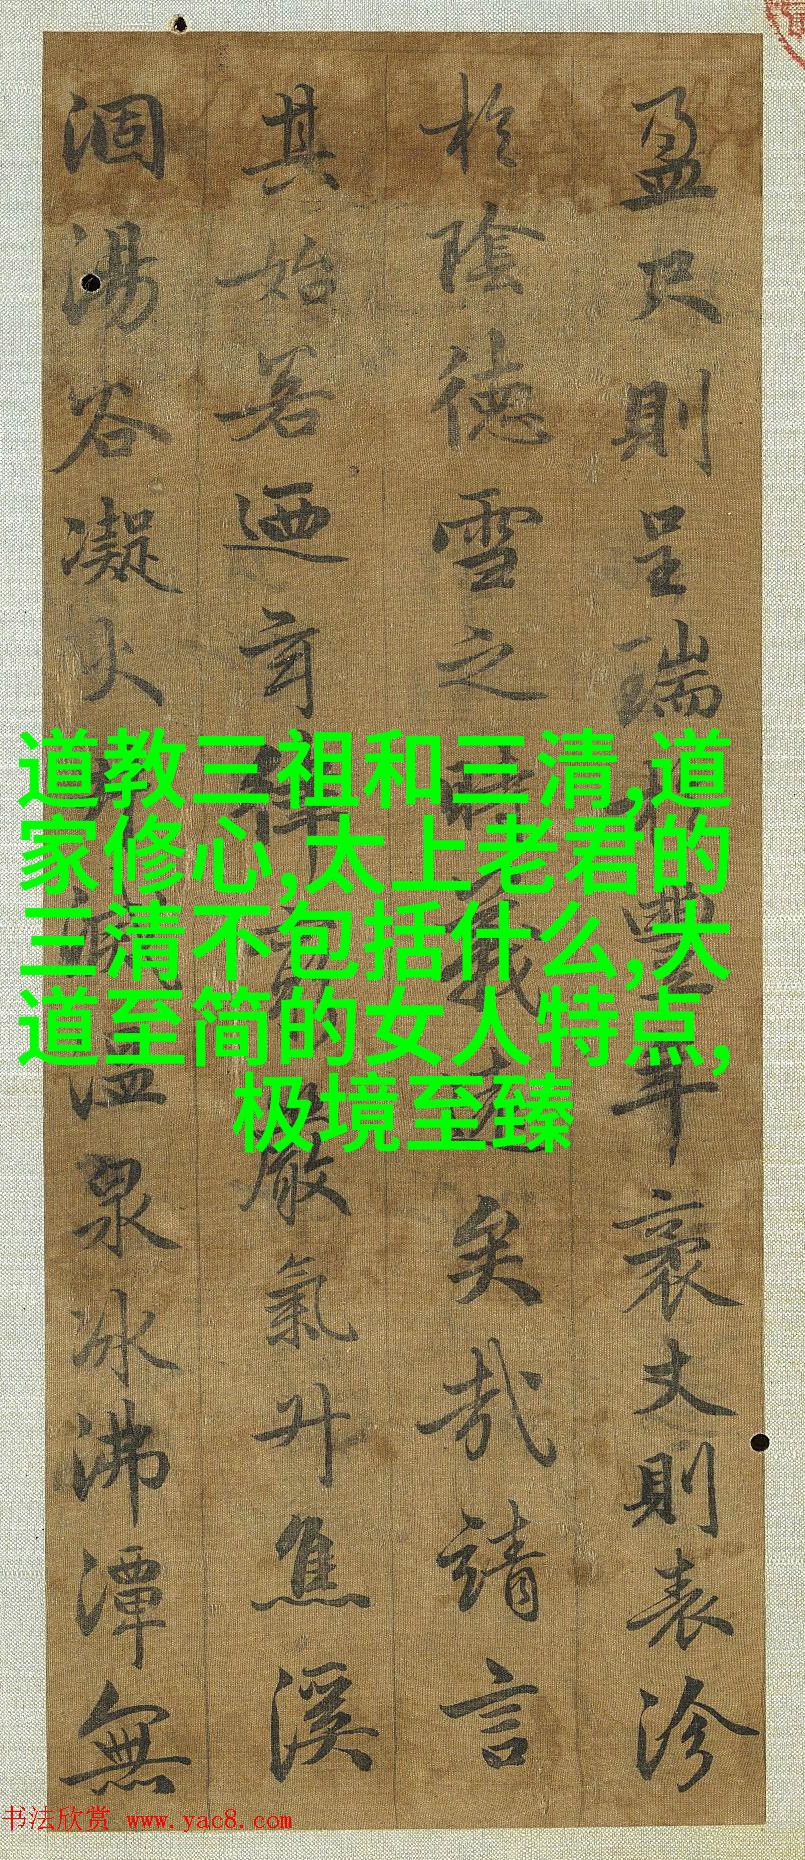 盈尺則呈瑞於豐年袤丈則表沴
於陰德雪之時義遠矣哉請言
其始若迺玄律嚴氣升焦溪
涸湯谷凝火溫泉冰沸潭無
道教三祖和三清,道
家修心,太上老君的
三清不包括什么,大
道至简的女人特点,
极境至臻
书法欣赏 www.yac8.com